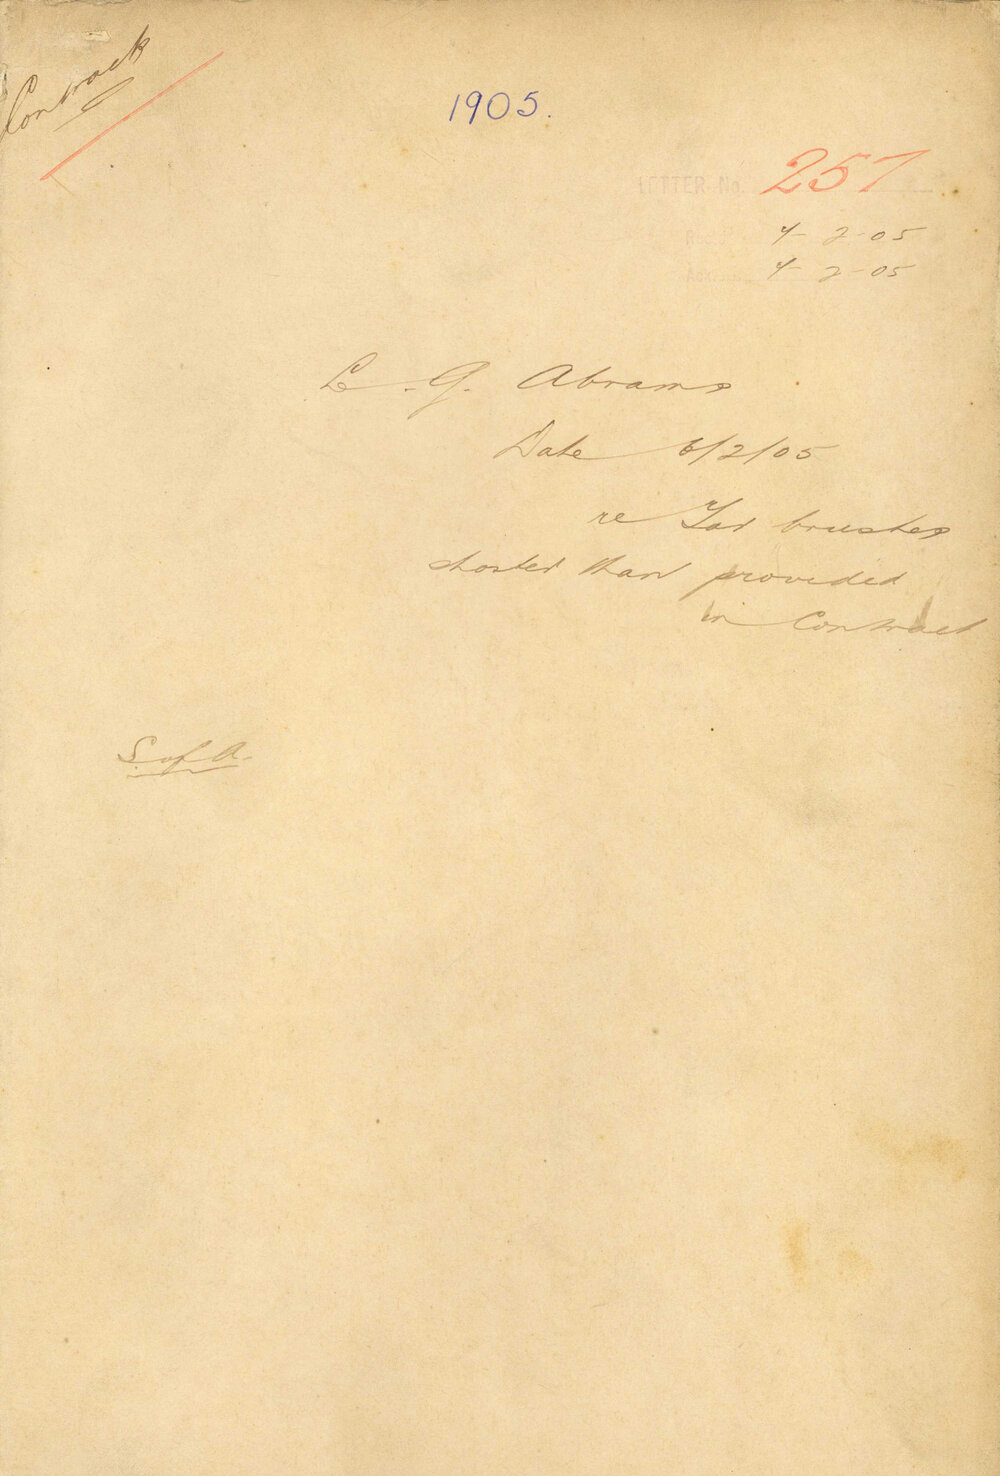 Contract
1905.
LETTER No. 257
Rec'd 7-2-05
Ack. 7-2-05
L. G. Abrams
Date 6/2/05
re Tar brushes
shorter than provided
in Contract
S. of A.